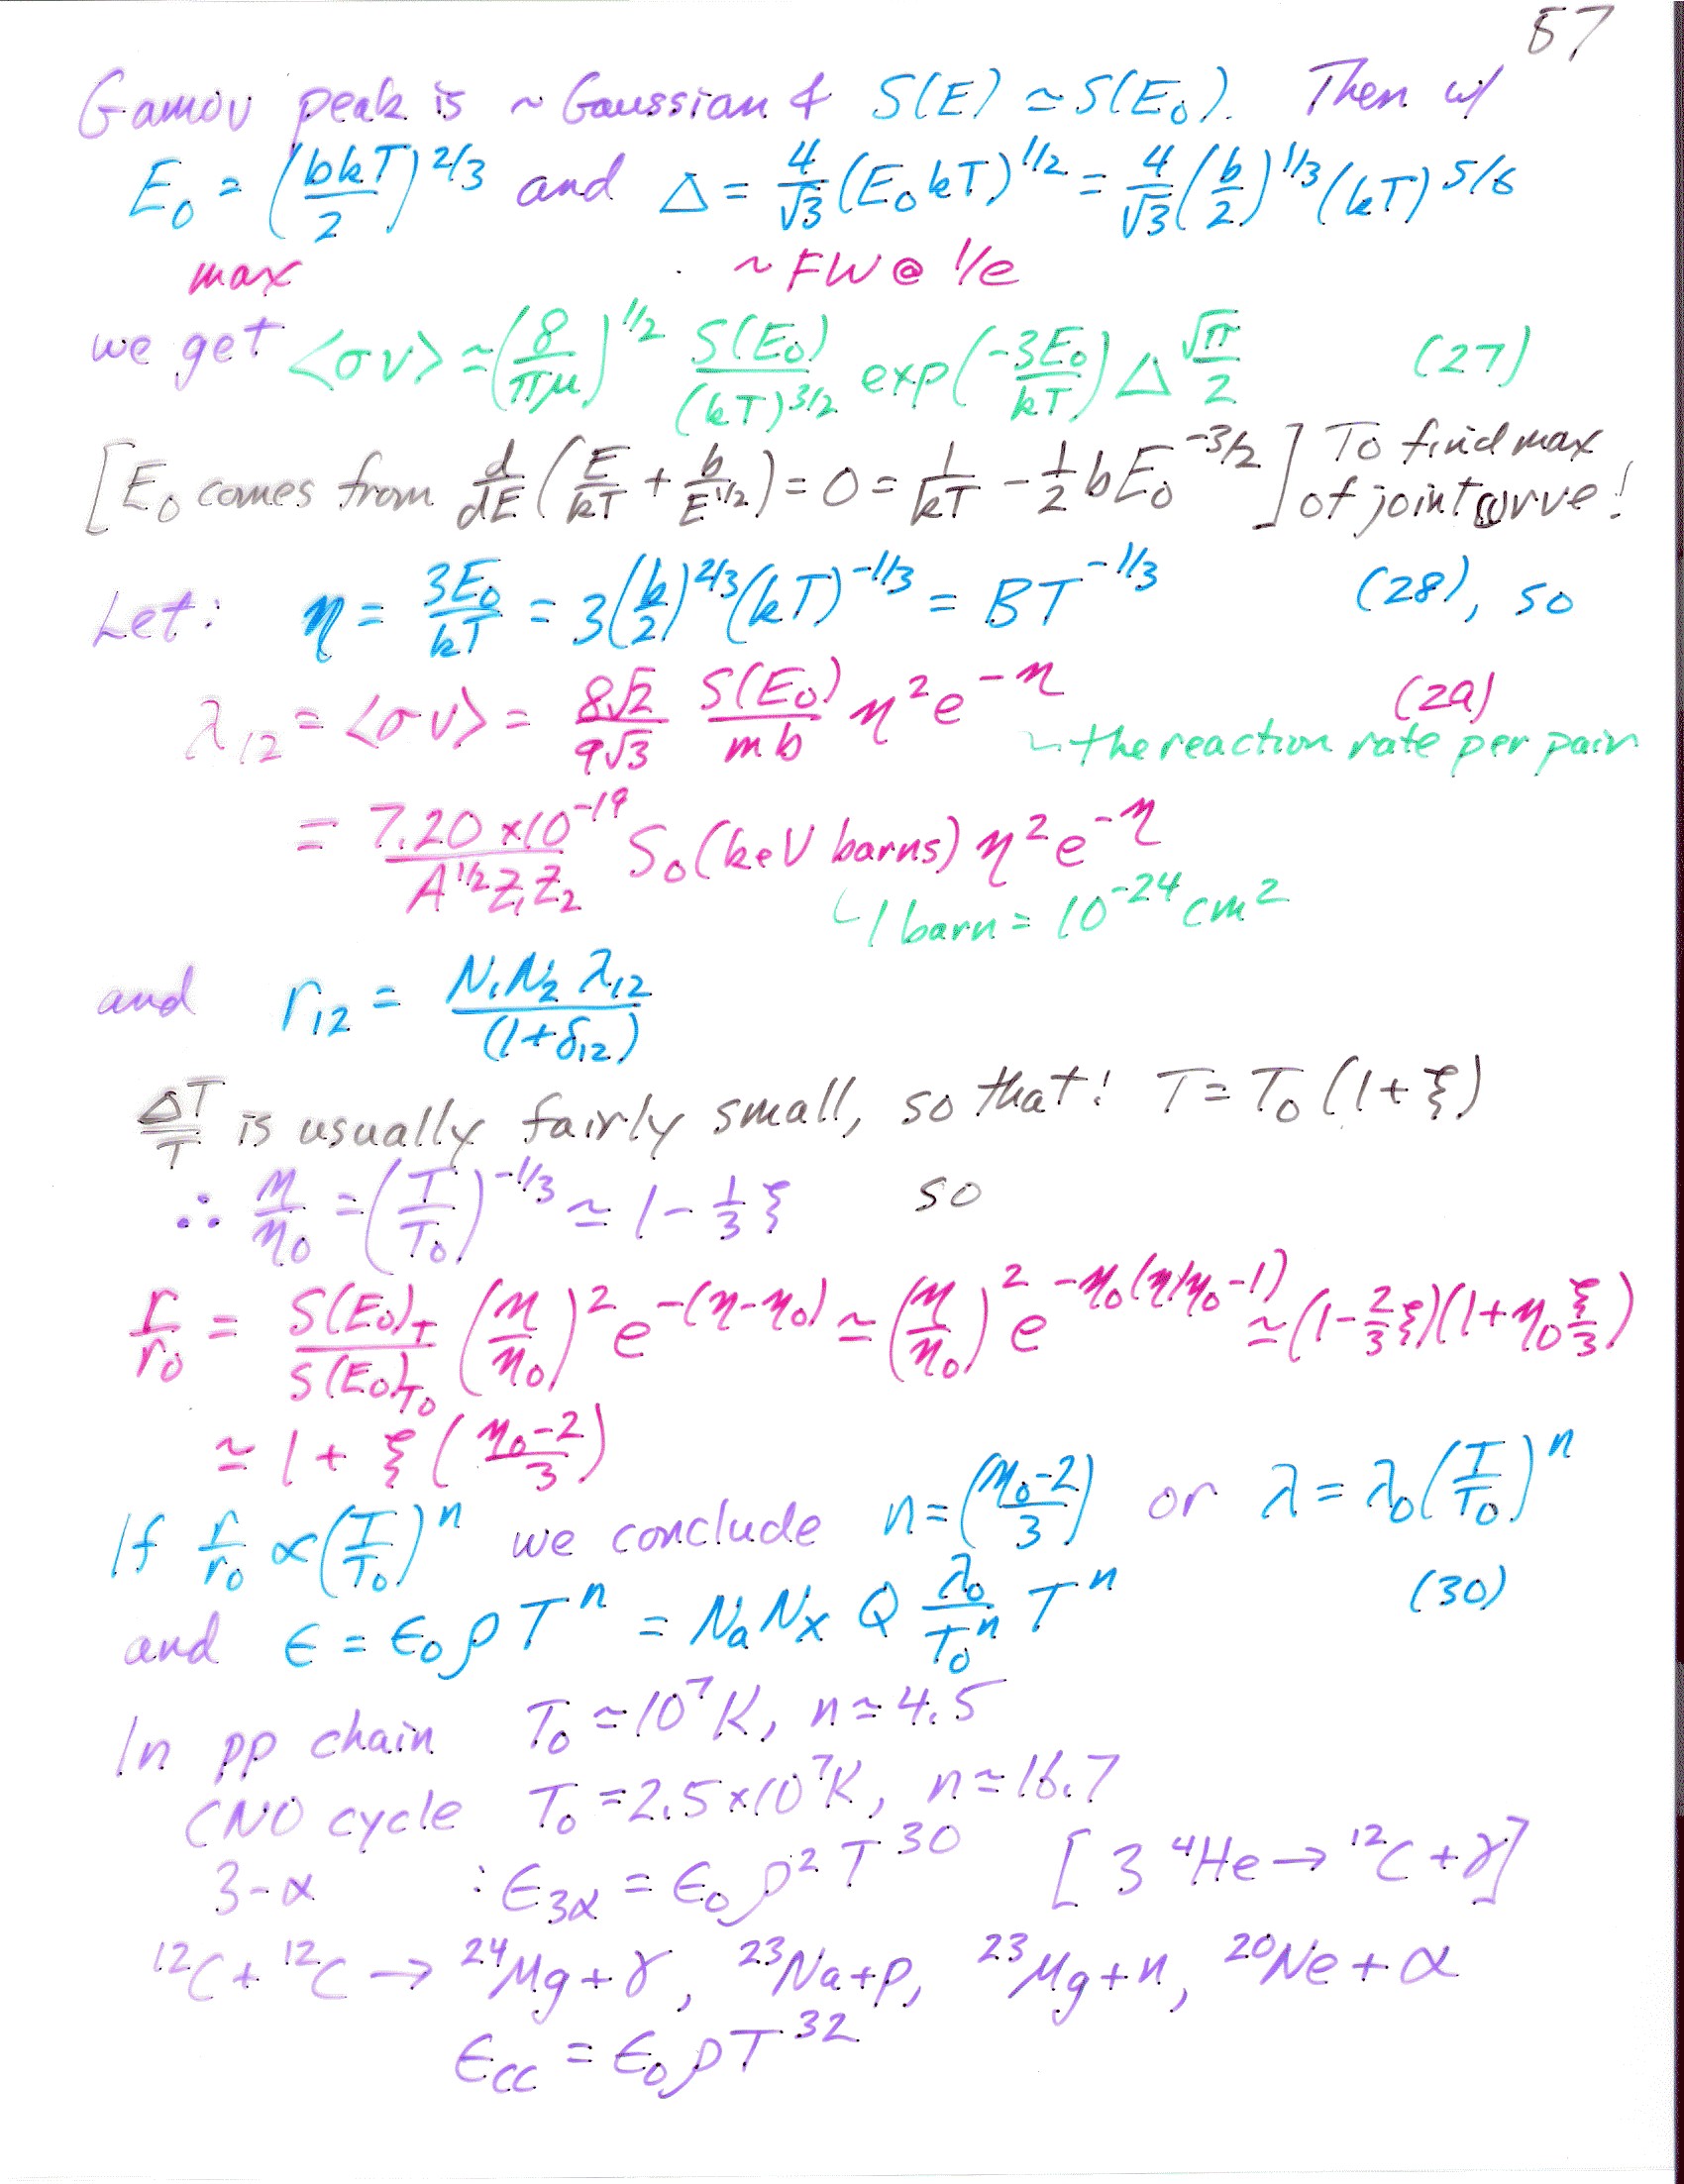 57
Gamov peak is ~ Gaussian & S(E) ≃ S(E₀). Then w/
E₀ = (bkT/2)^2/3 and Δ = 4/√3 (E₀kT)^1/2 = 4/√3 (b/2)^1/3 (kT)^5/6
max ~ FW @ 1/e
we get <σv> ≃ (8/πμ)^1/2 S(E₀)/(kT)^3/2 exp(-3E₀/kT) Δ √π/2 (27)
[E₀ comes from d/dE (E/kT + b/E^1/2) = 0 = 1/kT - 1/2 bE₀^-3/2] To find max
of joint curve!
Let: η = 3E₀/kT = 3(b/2)^2/3 (kT)^-1/3 = BT^-1/3 (28), so
λ₁₂ = <σv> = 8√2/9√3 S(E₀)/mb η²e^-η (29)
the reaction rate per pair
= 7.20 ×10^-19/A^1/2 Z₁Z₂ S₀(keV barns) η²e^-η
1 barn = 10^-24 cm²
and r₁₂ = N₁N₂ λ₁₂/(1+δ₁₂)
ΔT/T is usually fairly small, so that: T = T₀(1+ξ)
∴ η/η₀ = (T/T₀)^-1/3 ≃ 1 - 1/3 ξ so
r/r₀ = S(E₀)_T/S(E₀)_T₀ (η/η₀)² e^-(η-η₀) ≃ (η/η₀)² e^-η₀(η/η₀-1) ≃ (1-2/3 ξ)(1+η₀ ξ/3)
≃ 1 + ξ(η₀-2/3)
If r/r₀ ∝ (T/T₀)^n we conclude n = (η₀-2/3) or λ = λ₀(T/T₀)^n
and ϵ = ϵ₀ρT^n = NₐNₓ Q λ₀/T₀^n T^n (30)
In pp chain T₀ ≃ 10⁷K, n ≃ 4.5
CNO cycle T₀ = 2.5×10⁷K, n ≃ 16.7
3-α : ϵ₃α = ϵ₀ρ²T³⁰ [3 ⁴He → ¹²C + γ]
¹²C + ¹²C → ²⁴Mg + γ, ²³Na + p, ²³Mg + n, ²⁰Ne + α
ϵcc = ϵ₀ρT³²